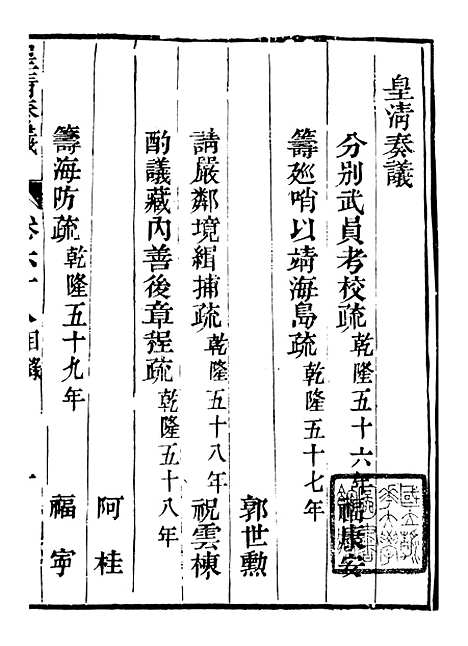 皇清奏議
分别武員考校疏 乾隆五十六年 福康安
籌廵哨以靖海島疏 乾隆五十七年
郭世勳
請嚴鄰境緝捕疏 乾隆五十八年 祝雲棟
酌議藏內善後章程疏 乾隆五十八年
阿桂
籌海防疏 乾隆五十九年 福寧
皇清奏議 卷六十八目錄 一